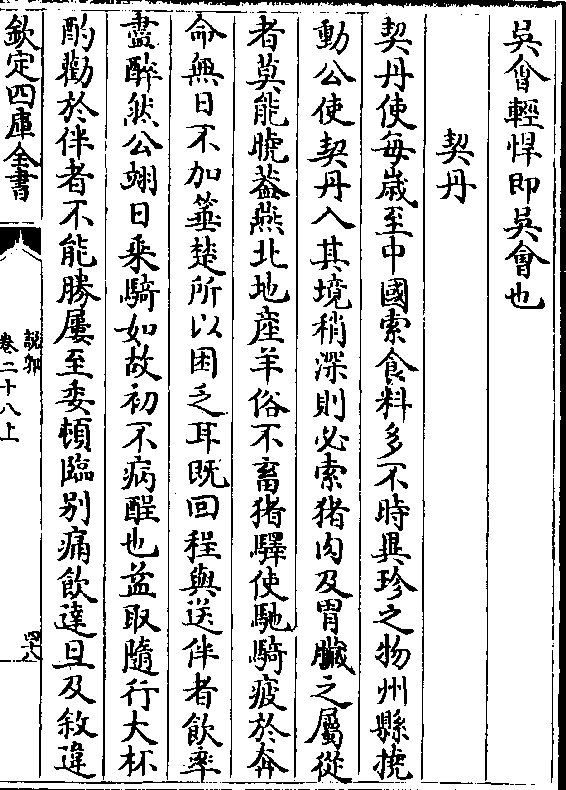 吳會輕悍即吳會也
契丹
契丹使每歲至中國索食料多不時異珍之物州縣撓
動公使契丹入其境稍深則必索猪肉及胃臟之屬從
者莫能曉葢燕北地產羊俗不畜猪驛使馳騎疲於奔
命無日不加箠楚所以困乏耳既回程與送伴者飲率
盡醉然公翊日乘騎如故初不病酲也益取隨行大杯
酌勸於伴者不能勝屢至委頓臨別痛飲達旦及敘違
欽定四庫全書
說郛
卷二十八上
四六